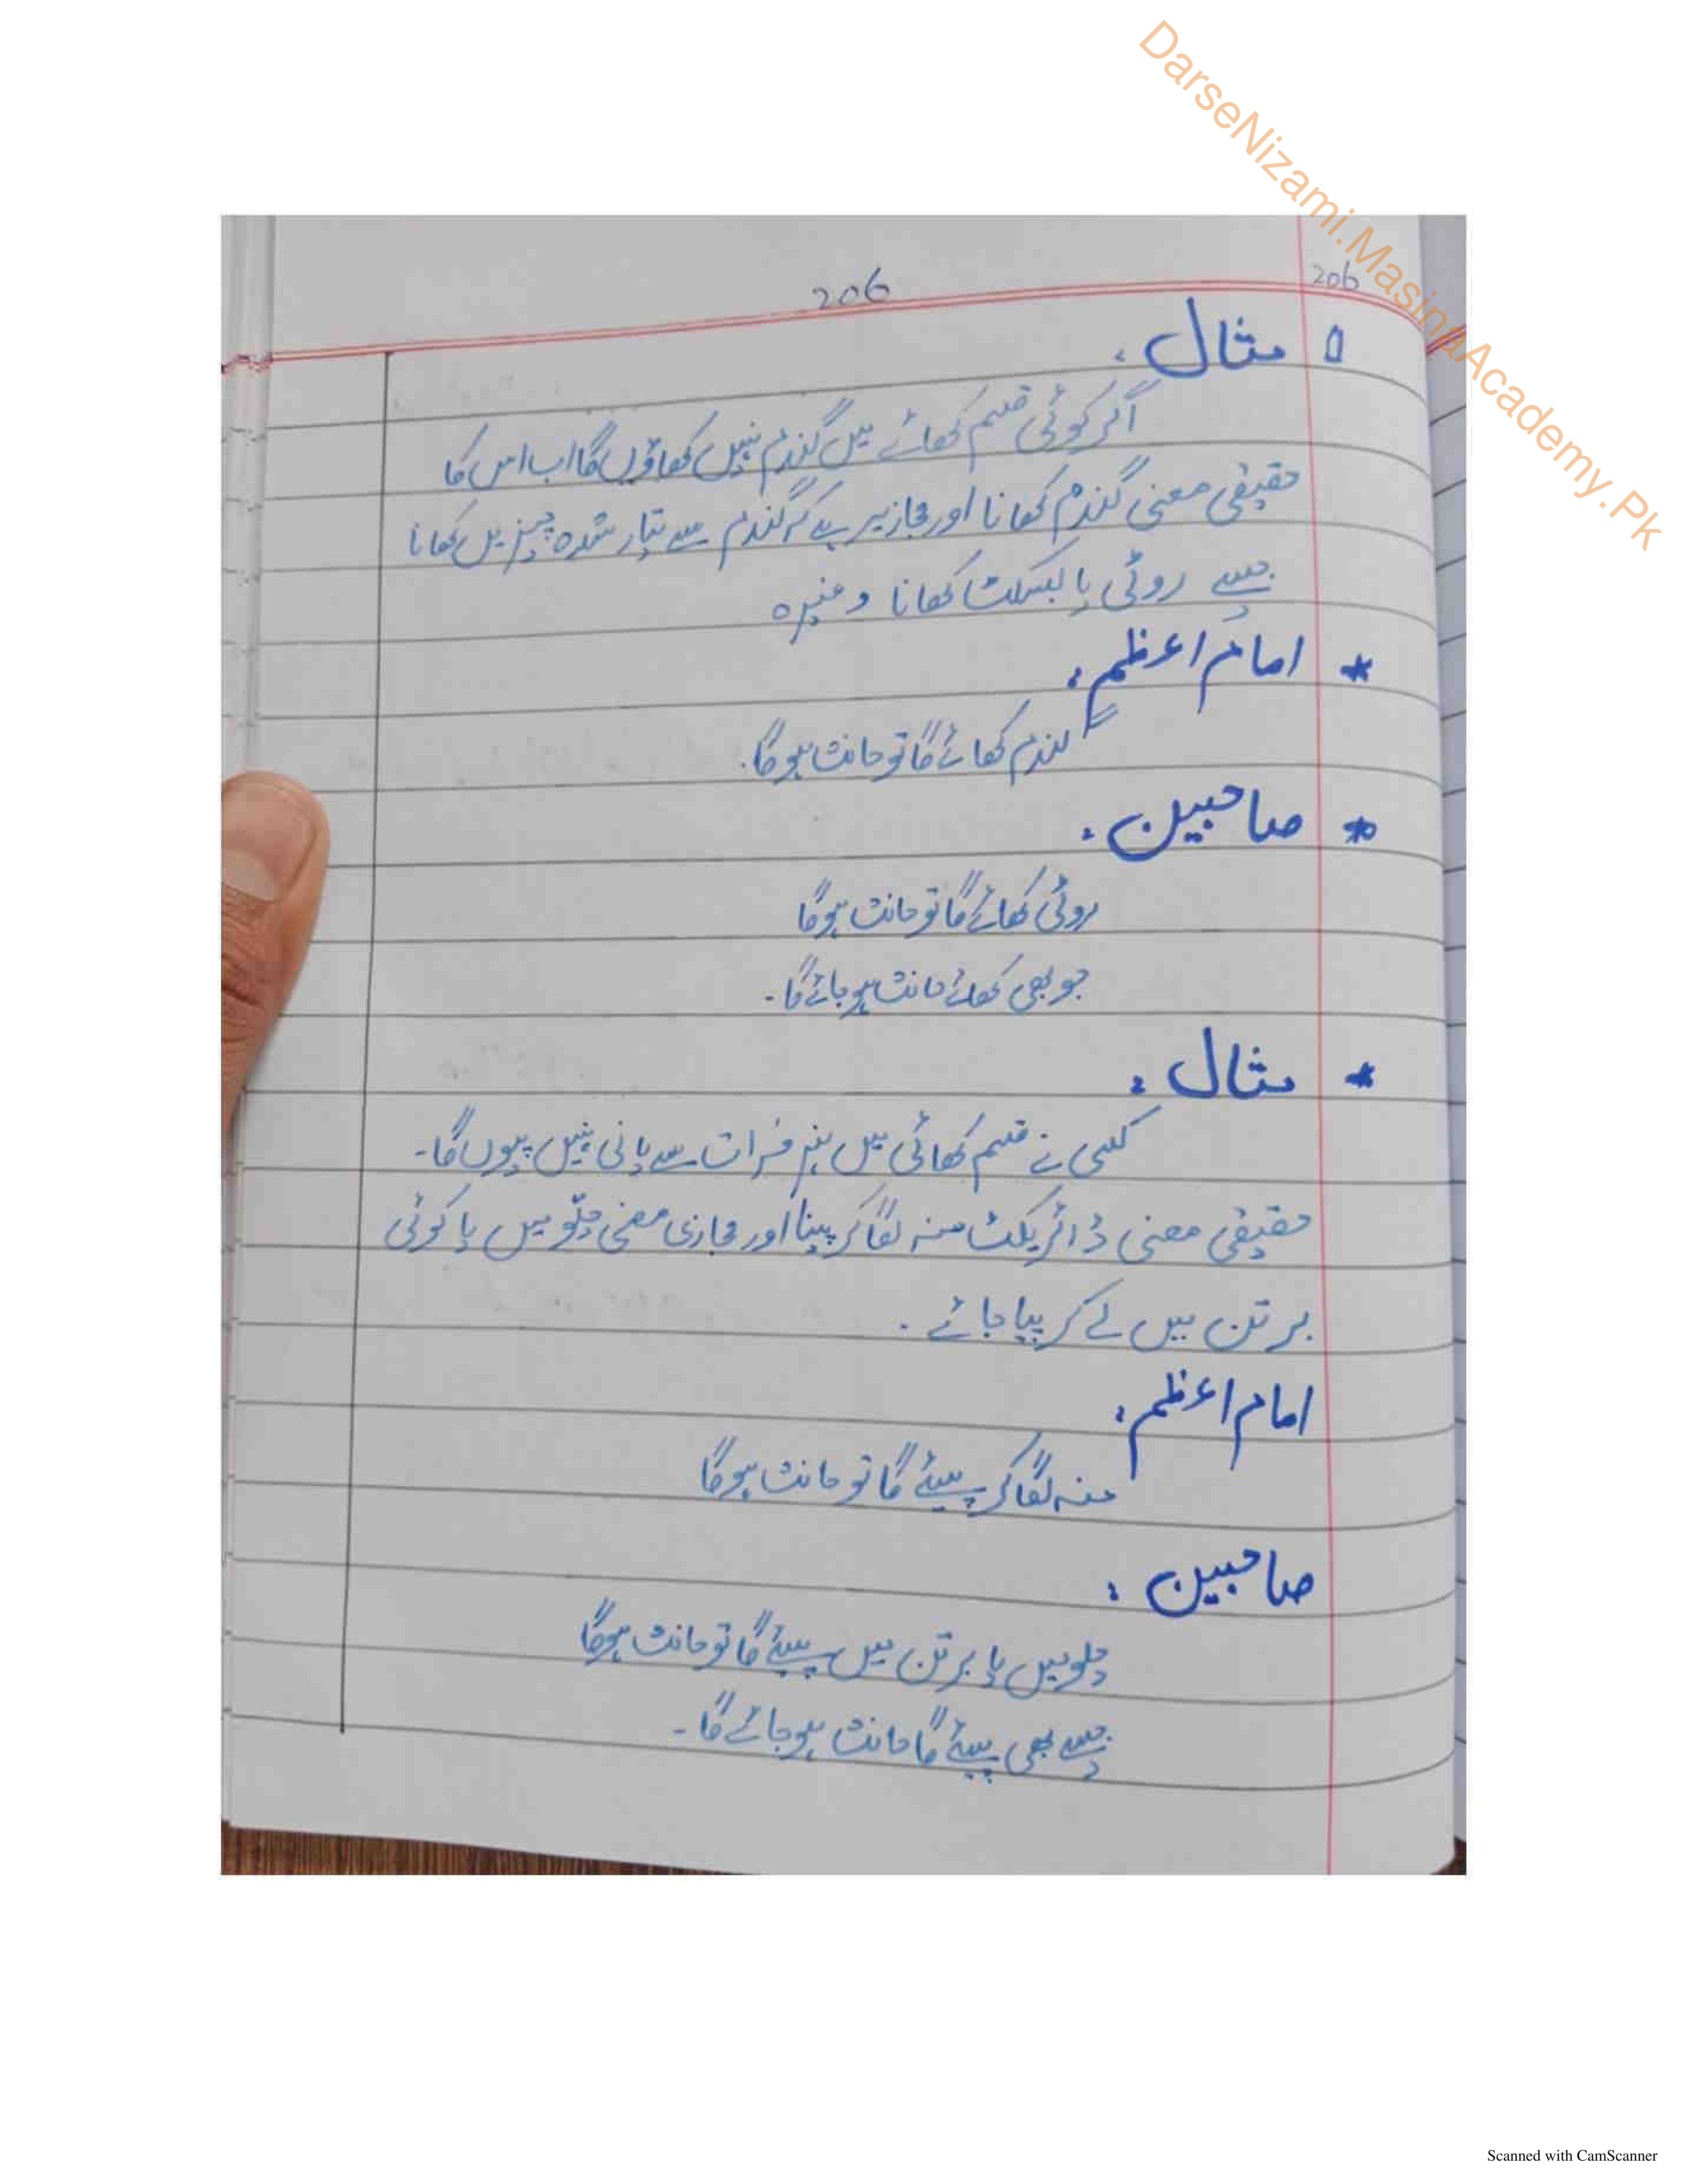 DarseNizami.MasinaAcademy.Pk
206
206
مثال :
اگر کوئی قسم کھائے میں گندم نہیں کھاؤں گا اب اس کا
حقیقی معنی گندم کھانا اور مجاز یہ ہے کہ گندم سے تیار شدہ چیزیں کھانا
جیسے روٹی یا بسکٹ کھانا وغیرہ
* امام اعظم :
گندم کھائے گا تو حانث ہوگا۔
* صاحبین :
روٹی کھائے گا تو حانث ہوگا
جو بھی کھائے حانث ہو جائے گا۔
* مثال :
کسی نے قسم کھائی میں نہر فرات سے پانی نہیں پیوں گا۔
حقیقی معنی ڈائریکٹ منہ لگا کر پینا اور مجازی معنی چلّو میں یا کوئی
برتن میں لے کر پیا جائے ۔
امام اعظم :
منہ لگا کر پیئے گا تو حانث ہوگا
صاحبین :
چلو میں یا برتن میں پیئے گا تو حانث ہوگا
جیسے بھی پیئے گا حانث ہو جائے گا۔
Scanned with CamScanner